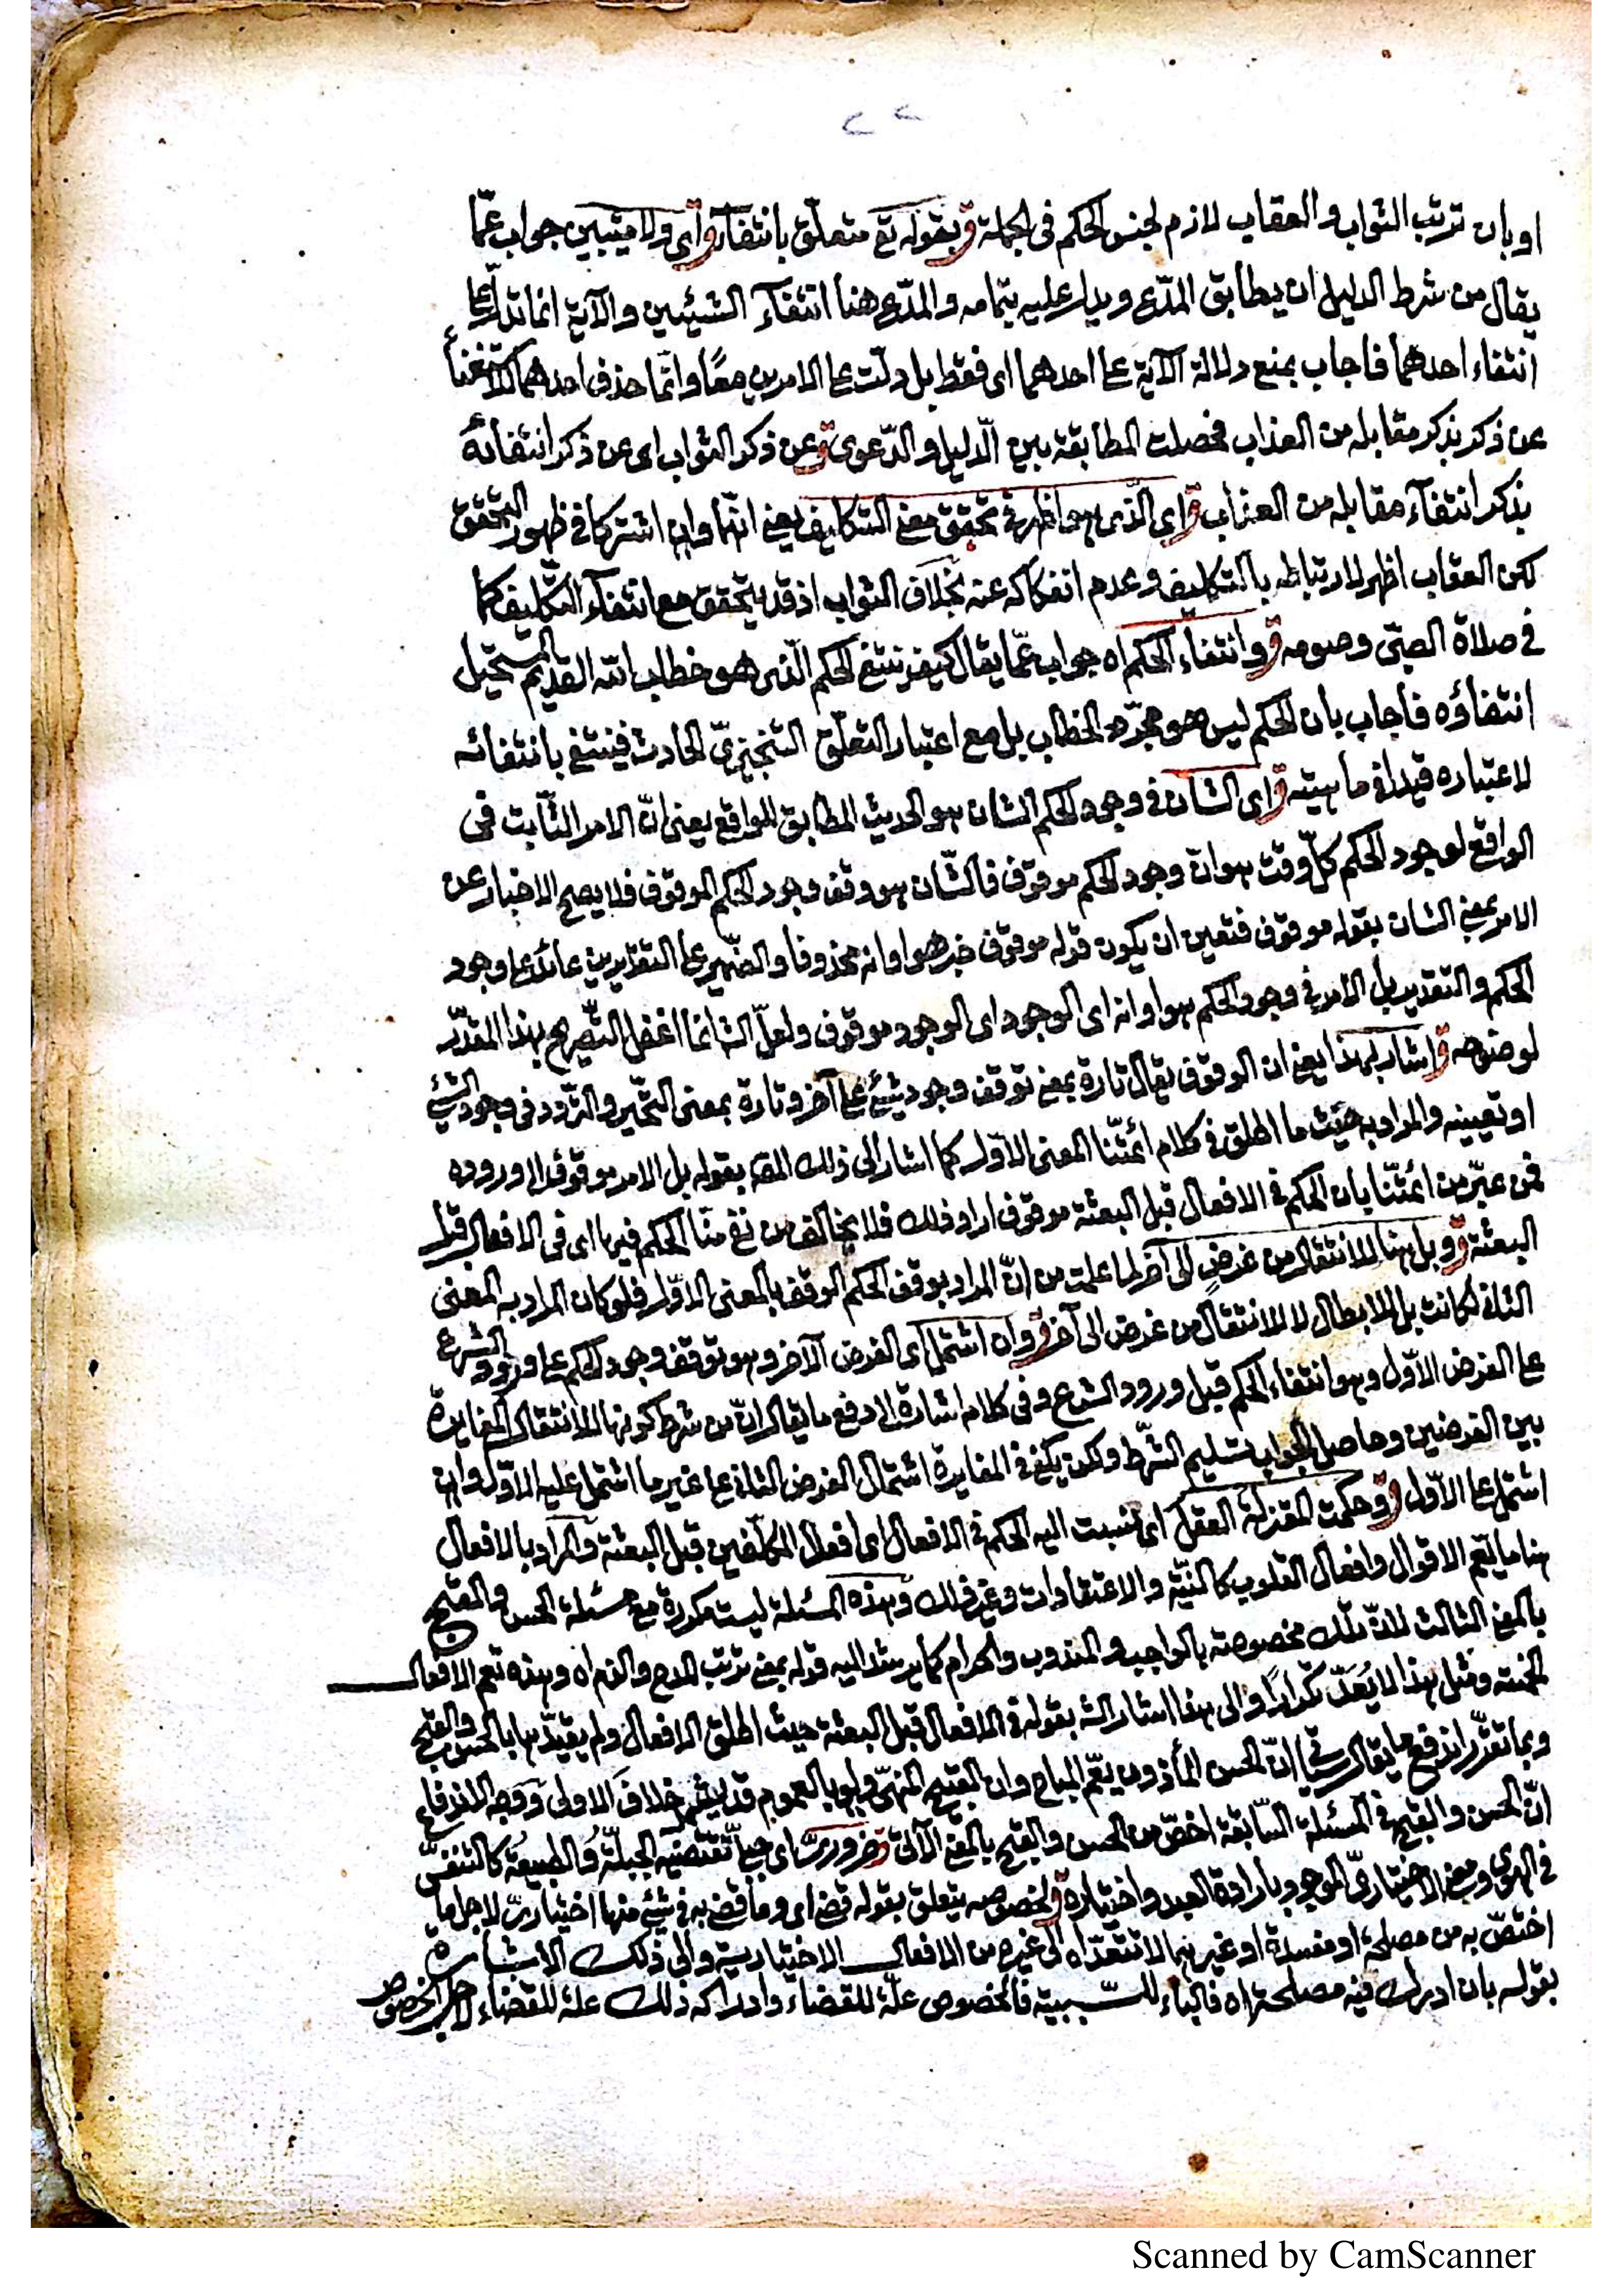 ٢٢
او بان ترتب الثواب والعقاب لازم لجنس الحكم فى الجملة ق بقوله تع متعلّق بانتفآء ق اى ولا مثيبين جواب عمّا
يقال من شرط الدليل ان يطابق المدّعى ويدل عليه بتمامه والمدّعى هنا انتفآء الشيئين والآية انما تدل على
انتفاء احدهما فاجاب بمنع دلالة الآية على احدهما اى فقط بل دلّت على الامرين معًا وانّما حذف احدهما للاستغنآء
عن ذكر بذكر مقابله من العذاب فحصلت المطابقة بين الّدليل والدّعوى ق عن ذكر الثواب اى عن ذكر انتفائه
بذكر انتفآء مقابله من العذاب ق اى الذى هو اظهر فى تحقق معنى التكليف يعنى انّهما وان اشتركا فى ظهور التحقق
لكن العقاب اظهر لارتباطه بالتكليف وعدم انفكاكه عنه بخلاف الثواب اذ قد يتحقق مع انتفآء التكليف كما
فى صلاة الصبّى وصومه ق وانتفآء الحكم اه جواب عمّا يقال كيف ينتفى الحكم الّذى هو خطاب الله القديم المستحيل
انتفاؤه فاجاب بان الحكم ليس هو مجرّد الخطاب بل مع اعتبار التعلّق التنجيزىّ الحادث فينتفى بانتفائه
لاعتباره قيدا فى ماهيته ق اى الشان فى وجود الحكم الشان هو الحديث المطابق للواقع يعنى انّ الامر الثّابت فى
الواقع لوجود الحكم كلّ وقت هو ان وجود الحكم موقوف فالشّان هو وقف وجود الحكم الموقوف فلا يصح الاخبار عن
الامر بمعنى الشان بقوله موقوف فتعين ان يكون قوله موقوف خبر هو او انه محذوفا والضّمير على التقديرين عائد على وجود
الحكم والتقدير بل الامر فى وجود الحكم هو او انه اى الوجود اى الوجود موقوف ولعلّ الشا انما اغفل التّصريح بهذا المقدّر
لوضوحه ق اشار بهذا يعنى ان الوقوف يقال تارة بمعنى توقف وجود شئ على آخر وتارة بمعنى التحّير والتردّد فى وجود الشئ
او تعيينه والمراد به حيث ما اطلق فى كلام ائمّتنا المعنى الاوّل كما اشار الى ذلك المص بقوله بل الامر موقوف الى وروده
فمن عبّر من ائمّتنا بان الحكم فى الافعال قبل البعثة موقوف اراد ذلك فلا يخالف من نفى منّا الحكم فيها اى فى الافعال قبل
البعثة ق وبل هنا للانتقال من غرض الى آخر لما علمت من انّ المراد بوقف الحكم الوقف بالمعنى الاوّل فلو كان المراد به المعنى
الثانى لكانت بل للابطال لا للانتقال من غرض الى آخر ق وان اشتمل اى الغرض الآخر وهو توقف وجود الحكم على ورود الشرع
على الغرض الاوّل وهو انتفاء الحكم قبل ورود الشرع وفى كلامه اشارة الى دفع ما يقال انّ من شرط كونها للانتقال المغايرة
بين الغرضين وحاصل الجواب تسليم الشّرط ولكن يكفى فى المغايرة اشتمال الغرض الثانى على غير ما اشتمل عليه الاوّل وان
اشتمل على الاوّل ق وحكمت المعتزلة العقل اى نسبت اليه الحكم فى الافعال اى افعال المكلّفين قبل البعثة والمراد بالافعال
هنا ما يعّم الاقوال وافعال القلوب كالنيّة والاعتقادات وغير ذلك وهذه المسئلة ليست مكررة مع مسئلة الحسن والقبح
بالمعنى الثالث لانّ تلك مخصوصة بالواجب والمندوب والحرام كما يرشد اليه قوله بمعنى ترتب المدح والذم اه وهذه تعم الافعال
الخمسة ومثل هذا لا يُعَدّ تكرارًا والى هذا اشار الشا بقوله فى الافعال قبل البعثة حيث اطلق الافعال ولم يقيّدها بالحسن والقبح
وبما تقرّر اندفع ما يقال انّ الحسن المأذون يعّم المباح وان القبيح المنهىّ ولو بالعموم قد يشمل خلاف الاولى ووجه الاندفاع
انّ الحسن والقبح فى المسئلة السّابقة اخصّ من الحسن والقبح بالمعنى الآتى ق ضرورىّ اى تقتضيه الجبلّة والطبيعة كالتنفسّ
فى الهوى ومعنى الاختيارىّ الموجود بارادة العبد واختياره ق لخصوصه يتعلق بقوله قضى اى وما قضى به فى شئ منها اختيارىّ لاجل ما
اختصّ به من مصلحة او مفسدة او غيرهما لا تتعدّاه الى غيره من الافعال الاختيارية والى ذلك الاشارة
بقوله بان ادرك فيه مصلحة اه فالباء للسّببية فالخصوص علّة للقضاء وادراكه ذلك علة للقضاء لاجل الخصوص
Scanned by CamScanner